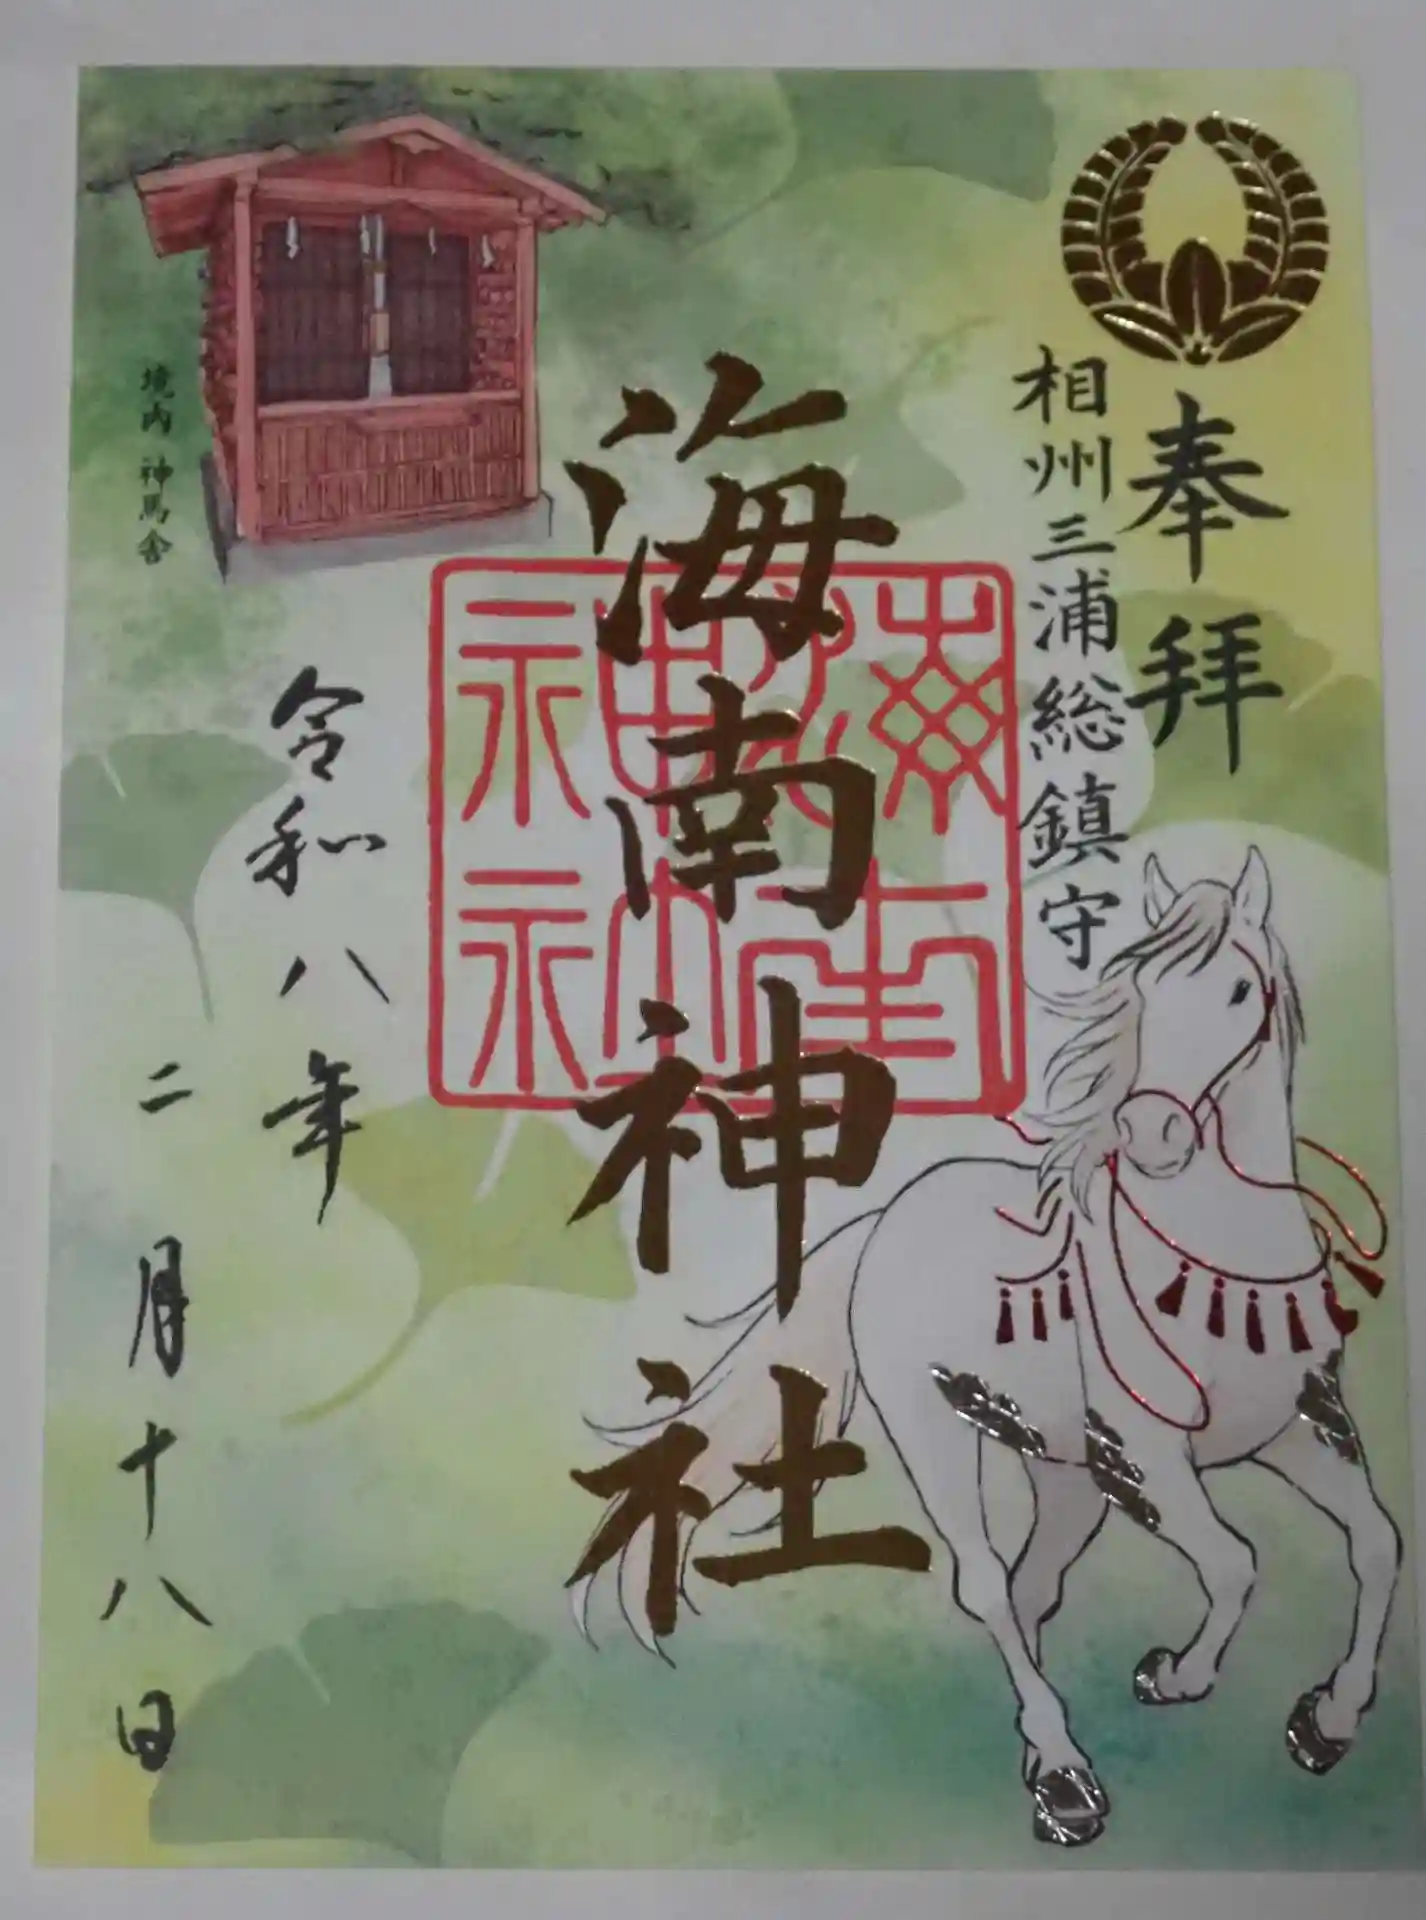 奉拝
相州三浦総鎮守
海南神社
令和八年
二月十八日
境内 神馬舎